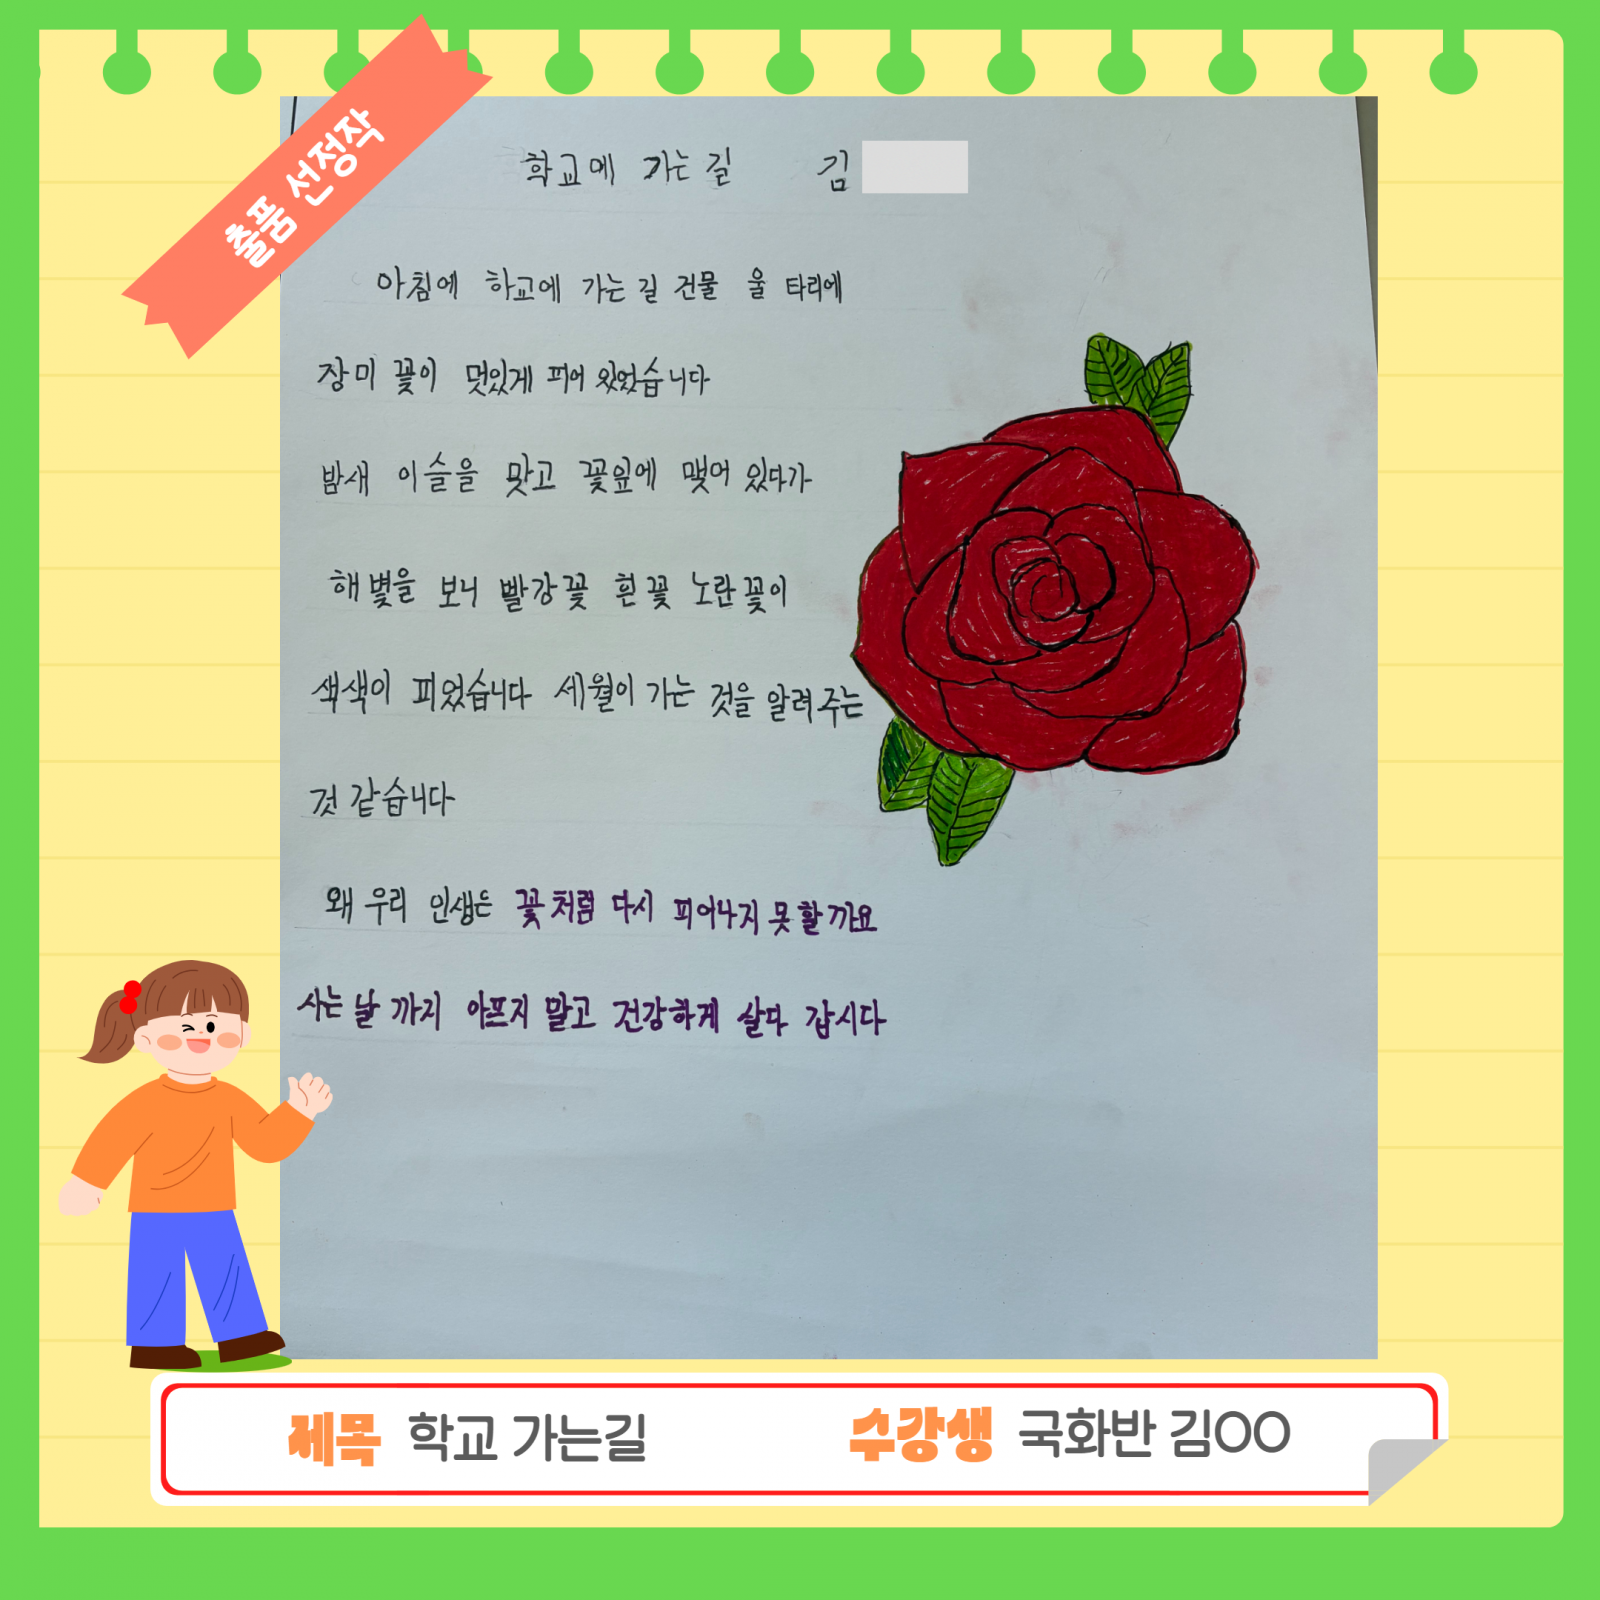 출품 선정작
학교에 가는 길 김
아침에 하교에 가는 길 건물 울 타리에
장미 꽃이 멋있게 피어 있었습니다
밤새 이슬을 맞고 꽃잎에 맺어 있다가
해 볓을 보니 빨강꽃 흰꽃 노란꽃이
색색이 피었습니다 세월이 가는 것을 알려 주는
것 같습니다
왜 우리 인생은 꽃처럼 다시 피어나지 못 할까요
사는 날 까지 아프지 말고 건강하게 살다 갑시다
제목 학교 가는길 수강생 국화반 김OO